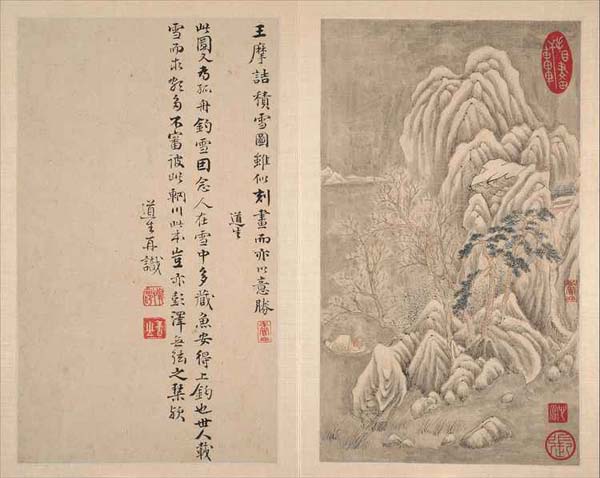 王摩詰積雪圖雖似刻畫而亦以意勝
道生
此圖又為孤舟釣雪因念人在雪中多藏魚安得上釣也世人載
雪而求 不審彼此輞川此本豈亦彭澤無絃之琴
道生再識